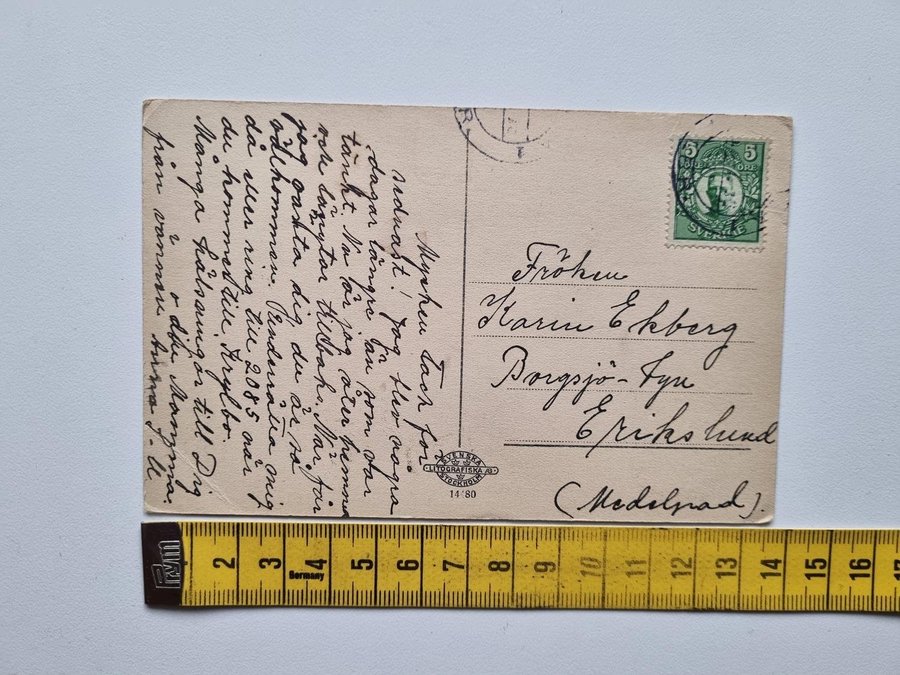 Mycken tack för
sednast! Jag blev några
dagar längre än som var
tänkt. Nu är jag åter hemma
och längtar tillbaks. När får
jag gästa dig, du är så
välkommen. Underrätta mig
då eller ring till 2085 när
du kommer till Krylbo.
Många hälsningar till Dig
o din Mamma.
från vännen Anna J-ll
5 5
ÖRE
SVERIGE
Fröken
Karin Ekberg
Borgsjö-Fyn
Erikslund
(Medelpad).
SVENSKA
LITOGRAFISKA AB
STOCKHOLM
14 80
2 3 4 5 6 7 8 9 10 11 12 13 14 15 16 17
Germany